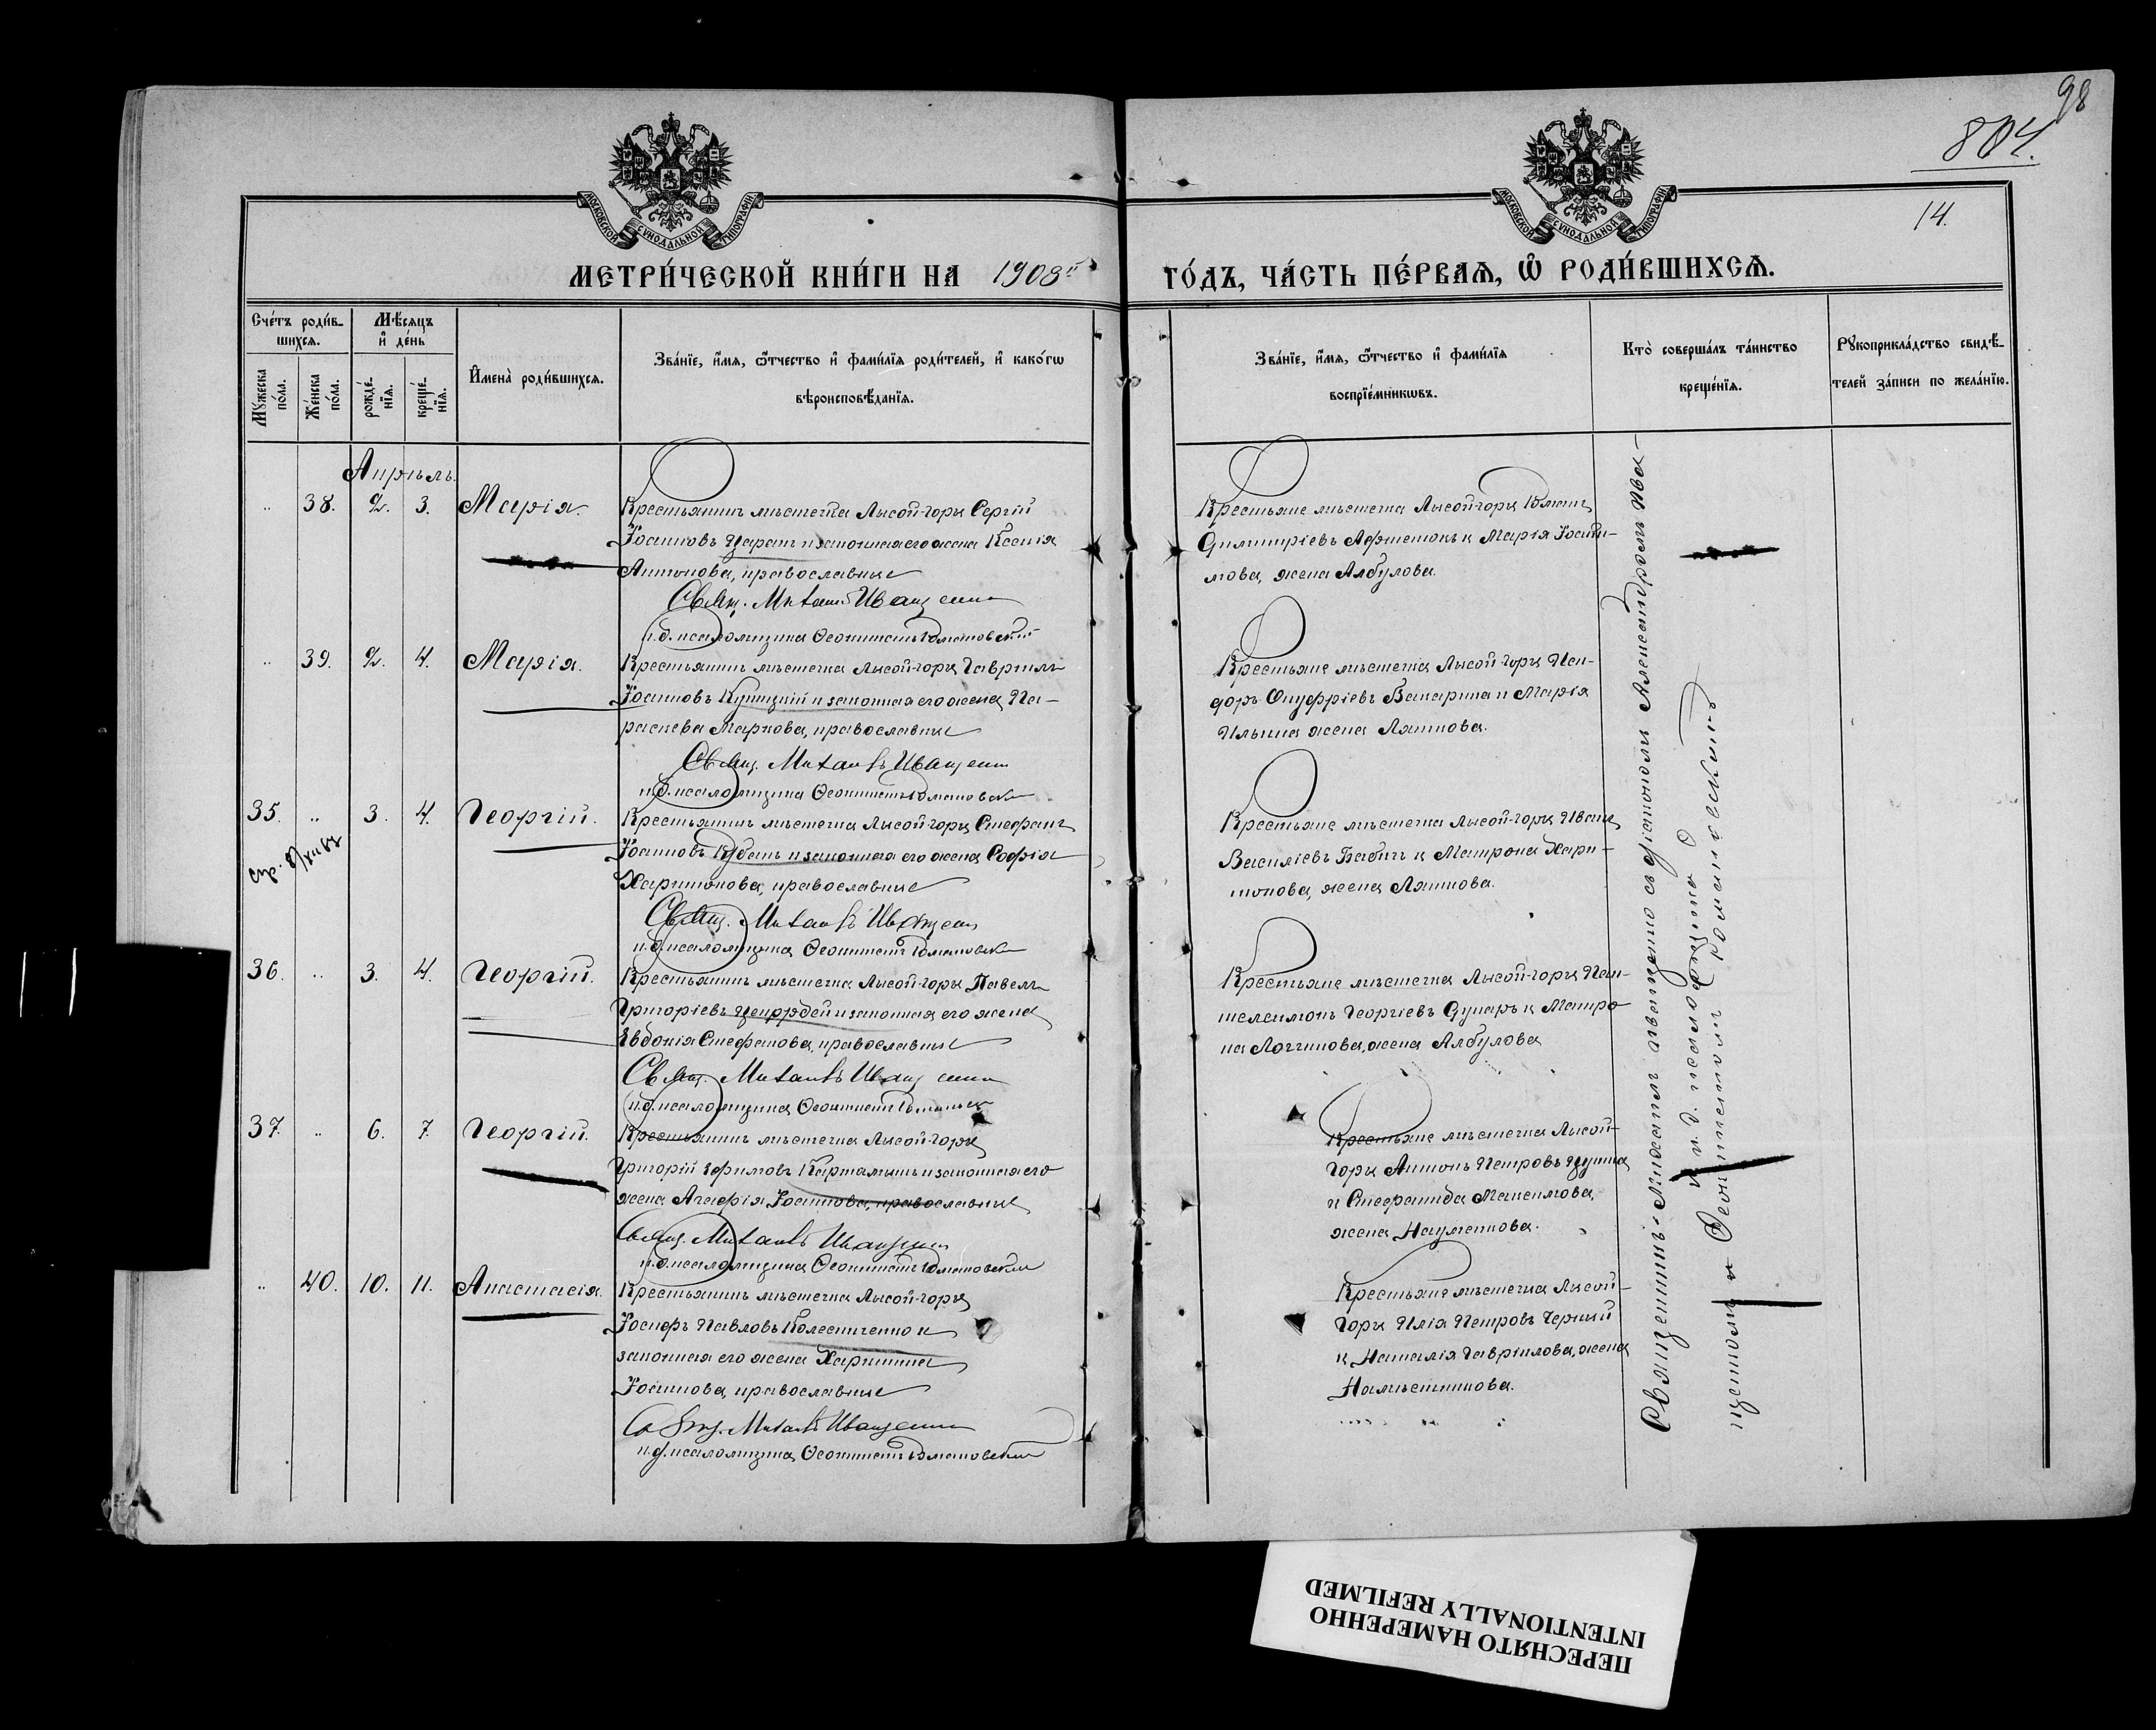 98
804.
14.
МОСКОВСКОЙ СѴНОДАЛЬНОЙ ТИПОГРАФІИ
МОСКОВСКОЙ СѴНОДАЛЬНОЙ ТИПОГРАФІИ
МЕТРИ́ЧЕСКОЙ КНИ́ГИ НА 1908й ГО́ДЪ, ЧА́СТЬ ПЕ́РВАѦ, Ѡ РОДИ́ВШИХСѦ.
Сче́тъ роди́в-
шихсѧ.
Мꙋ́жеска по́ла.
Же́нска по́ла.
Мѣ́сѧцъ и҆ де́нь
рожде́-нїѧ.
креще́-нїѧ.
И҆мена̀ роди́вшихсѧ.
Зва́нїе, и҆́мѧ, ѻ҆́тчество и҆ фами́лїѧ роди́телей, и҆ како́гѡ
вѣроисповѣ́данїѧ.
Зва́нїе, и҆́мѧ, ѻ҆́тчество и҆ фами́лїѧ
воспрїе́мникѡвъ.
Кто̀ соверша́лъ та́инство
креще́нїѧ.
Рꙋкоприкла́дство свидѣ́-
телей за́писи по жела́нїю.
Апрѣль.
" 38. 2. 3. Марія.
Крестьянинъ мѣстечка Лысой-горы Сергій
Іоанновъ Царанъ и законная его жена Ксенія
Антонова, православные
Свящ. Михаилъ Иващенко
и.д. псаломщика Ѳеоктистъ Романовскій
Крестьяне мѣстечка Лысой-горы Романъ
Димитріевъ и Марія Іоан-
нова, жена Албулова.
" 39. 2. 4. Марія.
Крестьянинъ мѣстечка Лысой-горы Гавріилъ
Іоанновъ Куницкій и законная его жена Па-
раскева Маркова, православные
Свящ. Михаилъ Иващенко
и.д. псаломщика Ѳеоктистъ Романовскій
Крестьяне мѣстечка Лысой-горы Иси-
доръ Онуфріевъ и Марія
Ильина жена Ляшкова.
35. " 3. 4. Георгій.
Крестьянинъ мѣстечка Лысой-горы Стефанъ
Іоанновъ и законная его жена Софія
Харитонова, православные
Свящ. Михаилъ Иващенко
и.д. псаломщика Ѳеоктистъ Романовскій
Крестьяне мѣстечка Лысой-горы Иванъ
Василіевъ Бабичъ и Матрона Хари-
тонова, жена Ляшкова.
36. " 3. 4. Георгій.
Крестьянинъ мѣстечка Лысой-горы Павелъ
Григоріевъ и законная его жена
Евдокія Стефанова, православные
Свящ. Михаилъ Иващенко
и.д. псаломщика Ѳеоктистъ Романовскій
Крестьяне мѣстечка Лысой-горы Пан-
телеимонъ Георгіевъ и Матро-
на Логгинова, жена Албулова
37. " 6. 7. Георгій.
Крестьянинъ мѣстечка Лысой-горы
Григорій Ефимовъ и законная его
жена Агафія Іоаннова, православные
Свящ. Михаилъ Иващенко
и.д. псаломщика Ѳеоктистъ Романовскій
Крестьяне мѣстечка Лысой-
горы Антонъ Петровъ
и Стефанида Максимова,
жена Науменкова.
" 40. 10. 11. Анастасія.
Крестьянинъ мѣстечка Лысой-горы
Іосифъ Павловъ Колесниченко и
законная его жена Харитина
Іоаннова, православные
Свящ. Михаилъ Иващенко
и.д. псаломщика Ѳеоктистъ Романовскій
Крестьяне мѣстечка Лысой-
Горы Илія Петровъ Черный
и Наталія Гавріилова, жена
Намѣстникова.
Священникъ Михаилъ Иващенко съ діакономъ Александромъ
и и. д. псаломщика Ѳеоктистомъ Романовскимъ
ПЕРЕСНЯТО НАМЕРЕННО
INTENTIONALLY REFILMED